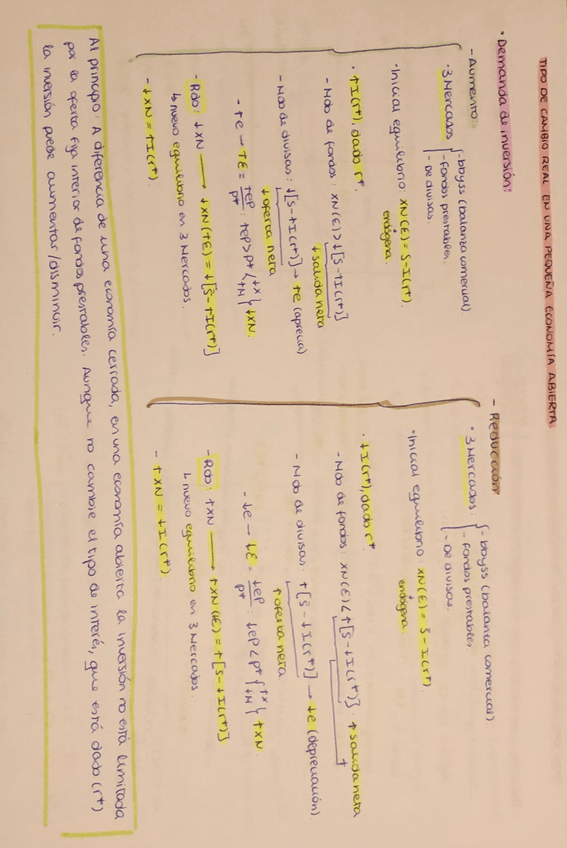 TIPO DE CAMBIO REAL EN UNA PEQUEÑA ECONOMÍA ABIERTA
• Demanda de inversión:
- Aumento:
• 3 Mercados { - bbyss (balanza comercial)
- Fondos prestables.
- De divisas.
• Inicial equilibrio: XN(E) = S̄ - I(r*)
endógena.
• ↑I(r*), dado r*.
- Mdo de fondos: XN(E) > ↓[S̄ - ↑I(r*)]
↓ salida neta
- Mdo de divisas: ↓[S̄ - ↑I(r*)] → ↑e (aprecia)
↓ oferta neta
- ↑e → ↑E = ↑eP / P* : ↑eP > P* { ↓X ↑M } ↓XN.
- Rdo: ↓XN → ↓XN(↑E) = ↓[S̄ - ↑I(r*)]
↳ nuevo equilibrio en 3 Mercados.
- ↓XN = ↑I(r*).
- Reducción
• 3 Mercados: { - bbyss (balanza comercial)
- Fondos prestables.
- De divisas.
• Inicial equilibrio: XN(E) = S̄ - I(r*)
endógena.
• ↓I(r*), dado r*.
- Mdo de fondos: XN(E) < ↑[S̄ - ↓I(r*)] ↑ salida neta
- Mdo de divisas: ↑[S̄ - ↓I(r*)] → ↓e (depreciación)
↑ oferta neta
- ↓e → ↓E = ↓eP / P* : ↓eP < P* { ↑X ↓M } ↑XN.
- Rdo: ↑XN → ↑XN(↓E) = ↑[S̄ - ↓I(r*)]
↳ nuevo equilibrio en 3 Mercados.
- ↑XN = ↓I(r*).
Al principio: A diferencia de una economía cerrada, en una economía abierta la inversión no está limitada
por la oferta fija interior de fondos prestables. Aunque no cambie el tipo de interés, que está dado (r*)
la inversión puede aumentar/disminuir.